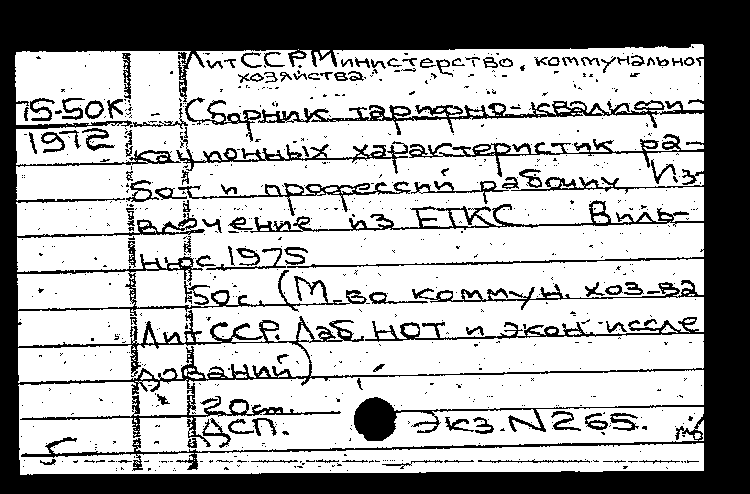 ЛитССР. Министерство коммунального
хозяйства
75-50К Сборник тарифно-квалифи-
1972 кационных характеристик ра-
бот и профессий рабочих. Из-
влечение из ЕТКС Виль-
нюс. 1975
50с. (М-во коммун. хоз-ва
ЛитССР. Лаб. НОТ и экон. иссле
дований)
20ст.
ДСП. Экз. N 265.
5